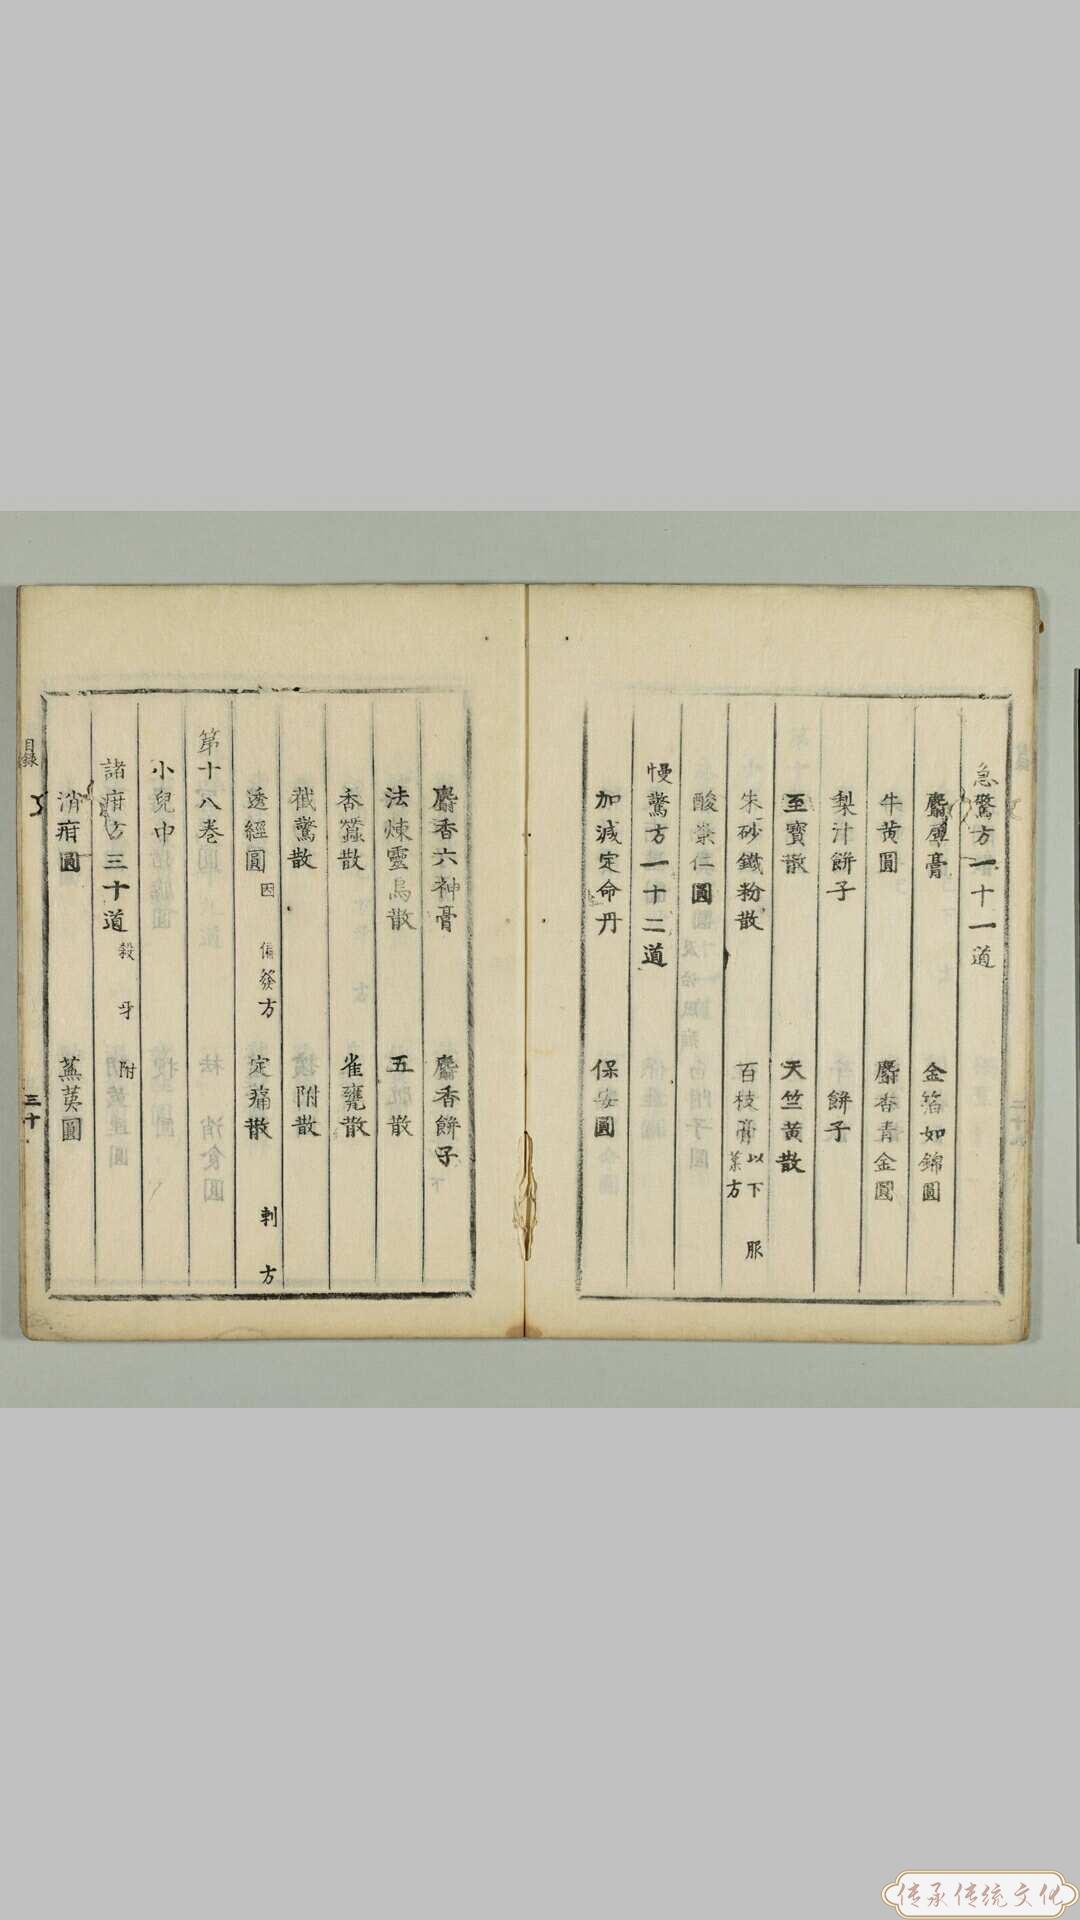 急驚方一十一道
麝□膏　金箔如錦圓
牛黄圓　麝香青金圓
梨汁餅子　餅子
至寶散　天竺黄散
朱砂鐵粉散　百枝膏以下服藥方
酸棗仁圓
慢驚方一十二道
加減定命丹　保安圓
麝香六神膏　麝香餅子
法煉靈烏散　五散
香蠶散　雀甕散
截驚散　附散
透經圓因偏發方　定痛散刺方
第十八巻
小兒中
諸疳方三十道殺牙附
消疳圓　蕪荑圓
目録
三十
传承传统文化